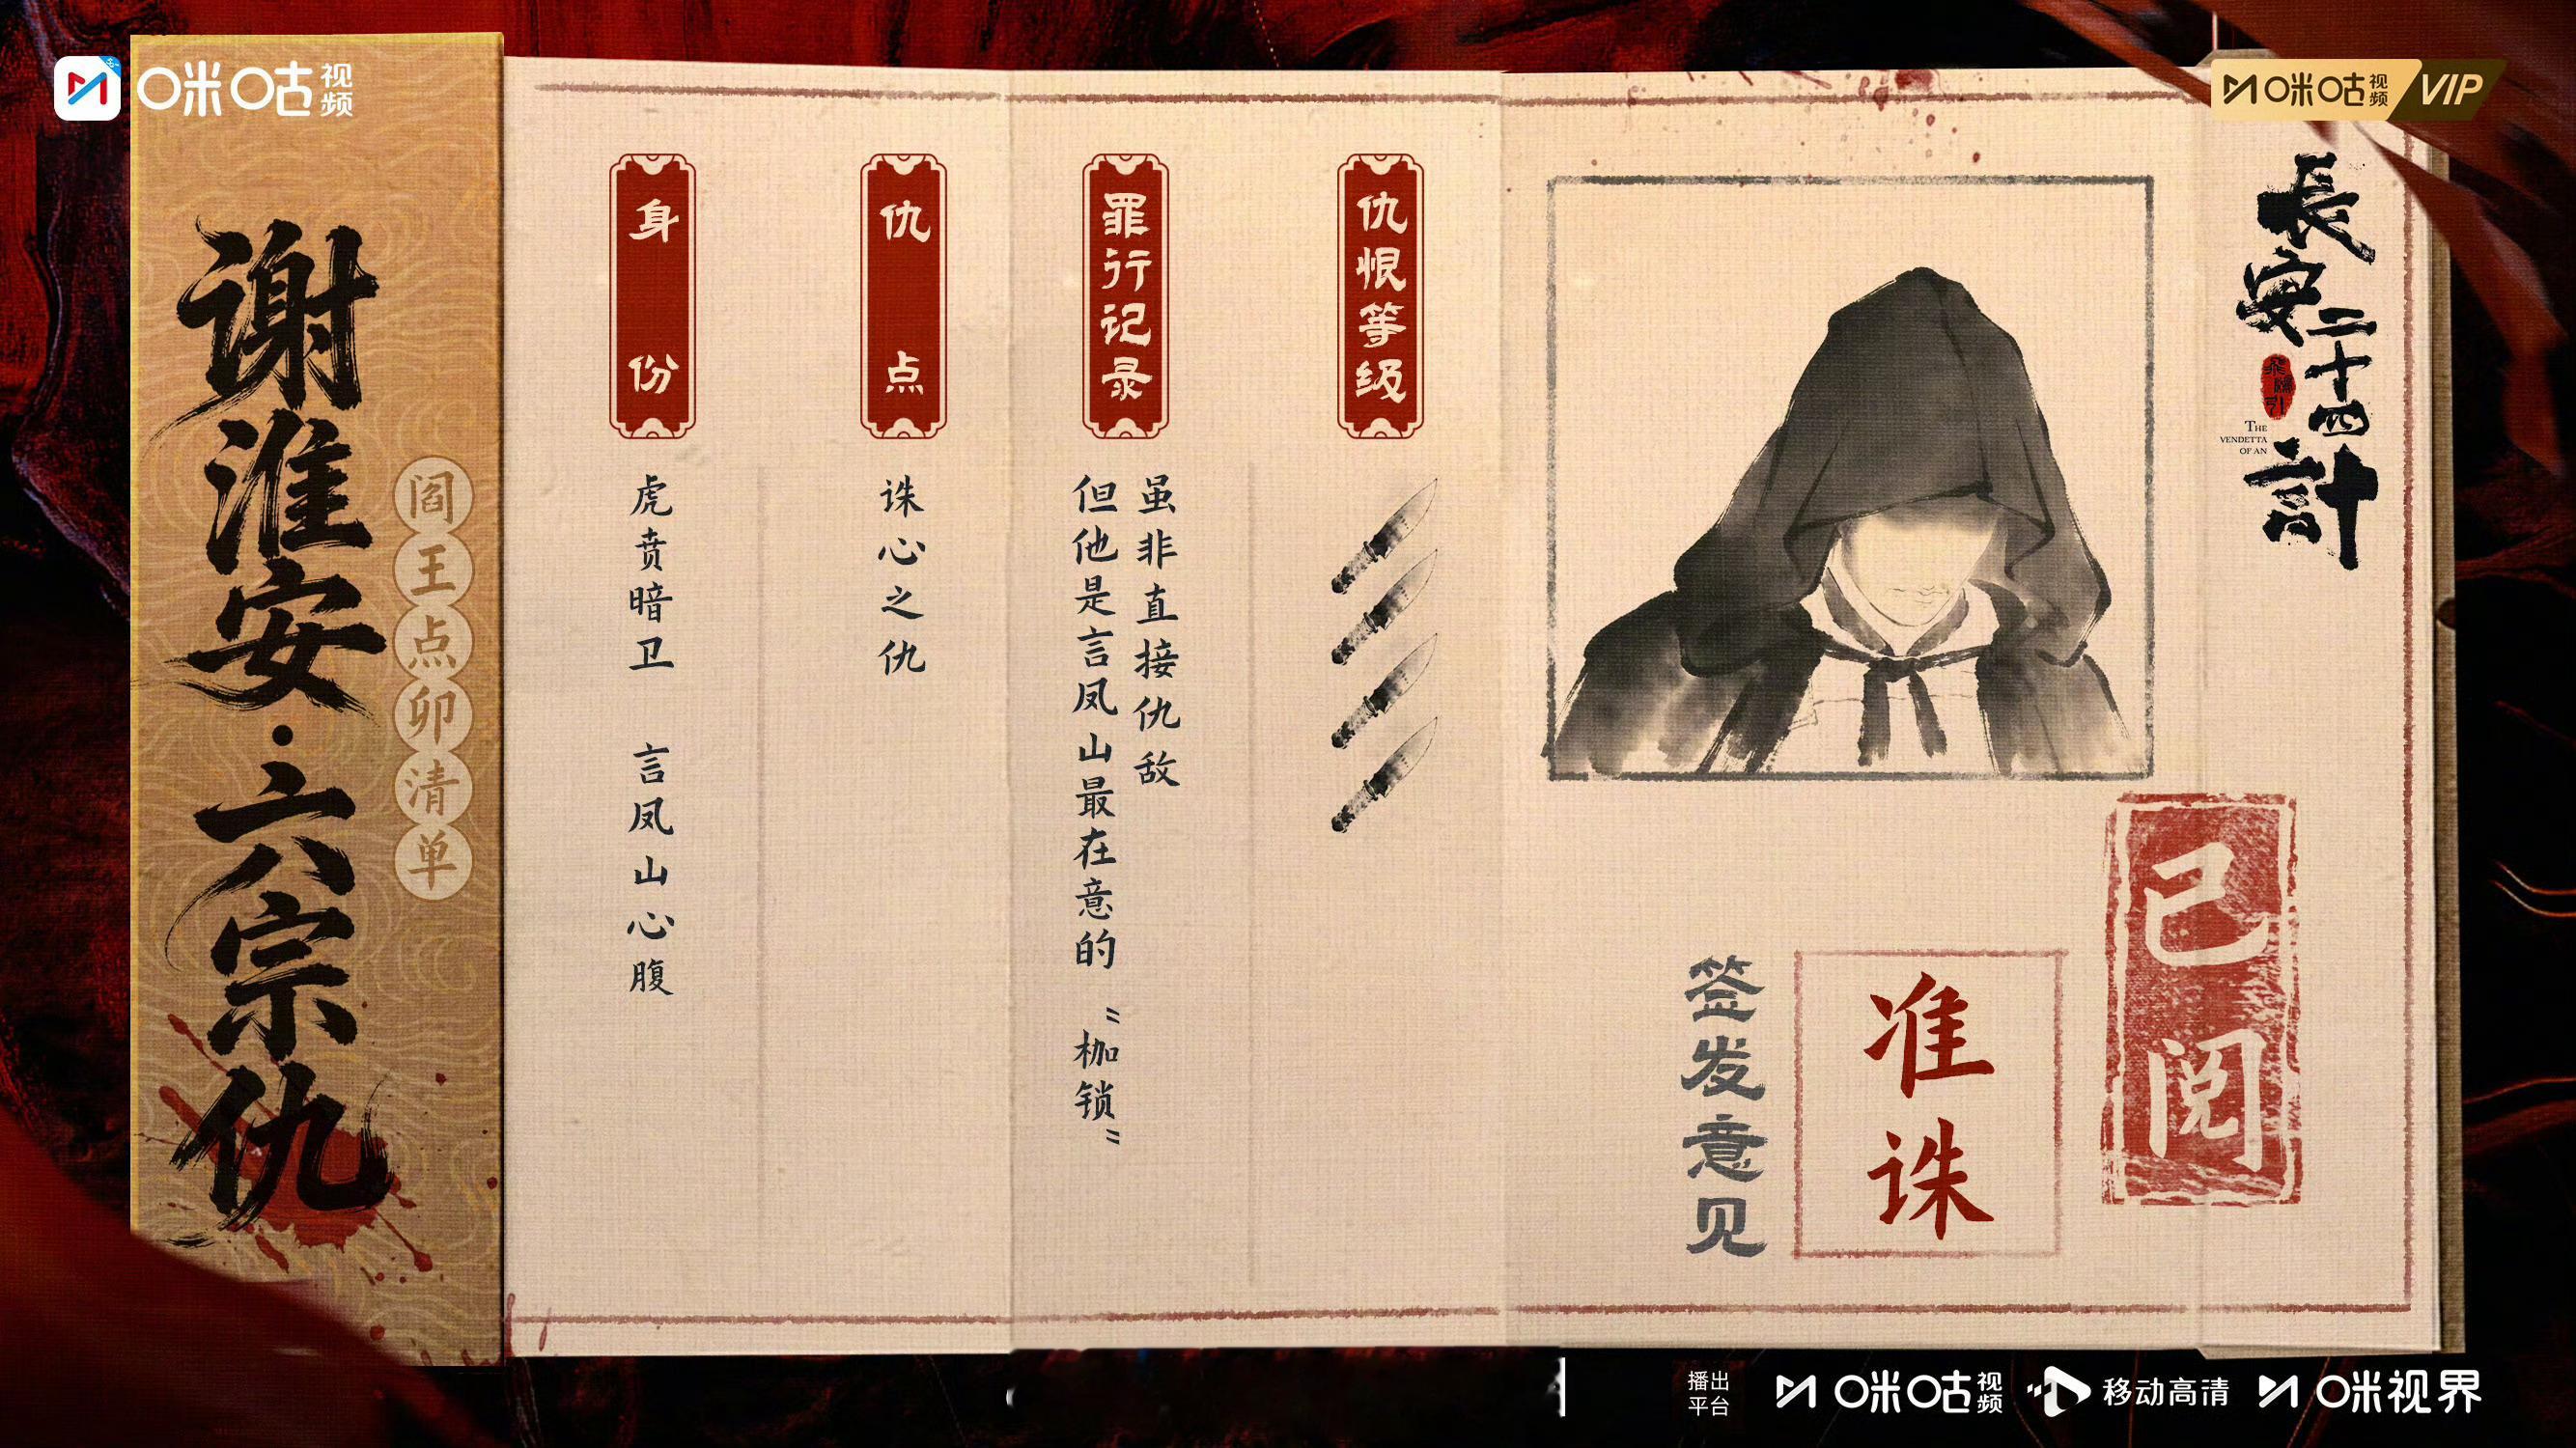 咪咕视频
咪咕视频 VIP
谢淮安·六宗仇
阎王点卯清单
身份
虎贲暗卫 言凤山心腹
仇点
诛心之仇
罪行记录
虽非直接仇敌
但他是言凤山最在意的“枷锁”
仇恨等级
長安二十四計
THE
VENDETTA
OF AN
已阅
签发意见
准诛
播出平台
咪咕视频
移动高清
咪视界